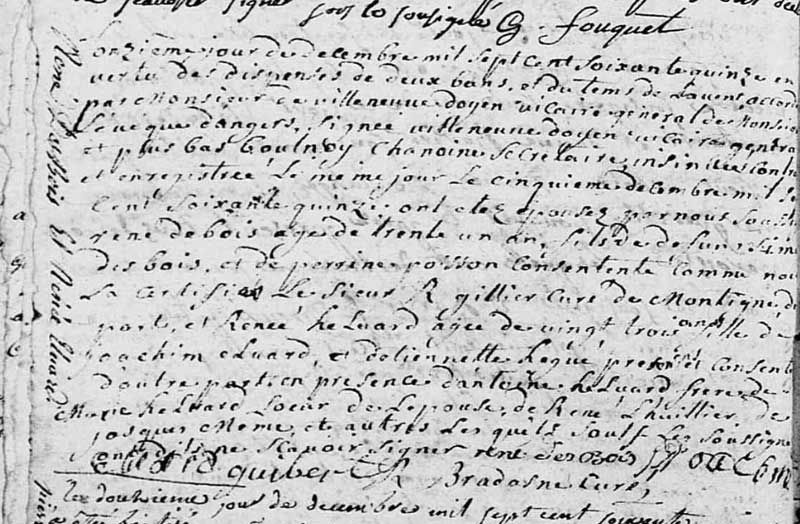 signer sous le soussigné G. fouquet
onzieme jour de decembre mil sept cent soixante quinze en
vertu des dispenses de deux bans, et du tems de Lavent accord
par Monsieur de villeneuve doyen vicaire general de Monse
Leveque dangers, signée villeneuve doyen vicaire general
et plus bas Boulnoy chanoine secretaire insinuée contro
et enregistrée Le meme jour Le cinquieme decembre mil se
Cent soixante quinze, ont étez epousez par nous soussi
rene desbois agé de trente un an, fils de defunt
desbois, et de perrine poisson consentente comme nou
La certifié Le sieur R gillier Curé de Montigné d
part, et Renée heluard agée de vingt trois ans fille de
joachim eluard, et detiennette hegué present et consente
d'autre part en presence dantoine heluard frere, de
Marie heluard soeur de Lepouse, de René Lhuillier, de
jacques meme, et autres Lesquels sauf Les soussigne
ont dits ne scavoir signer rené desbois joachim
guibert Bradasne Curé
René Desbois Et Renée Eluard
Le douzieme jour de decembre mil sept cent soixante